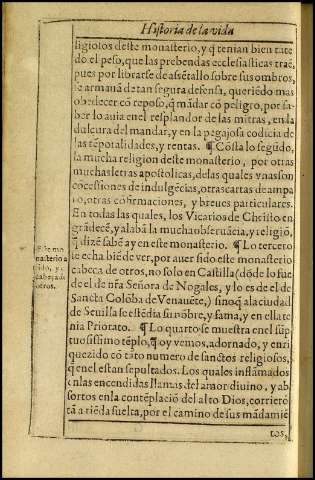 Historia de la vida
ligiosos deste monasterio, y q̃ tenian bien tātea
do el peso, que las prebendas ecclesiasticas traẽ,
pues por librarse de asentallo sobre sus ombros,
se armauã de tan segura defensa, queriẽdo mas
obedecer cõ reposo, q̃ mãdar cõ peligro, por sa-
ber lo auia en el resplandor de las mitras, en la
dulçura del mandar, y en la pegajosa codicia de
las tẽporalidades, y rentas. ¶ Cõsta lo segũdo,
la mucha religion deste monasterio, por otras
muchas letras apostolicas, de las quales vnas son
cõcessiones de indulgẽcias, otras cartas de ampa
ro, otras cõfirmaciones, y breues particulares.
En todas las quales, los Vicarios de Christo en
grãdecẽ, y alabã la mucha obseruãcia, y religiõ,
q̃ dizẽ sabẽ ay en este monasterio. ¶ Lo tercero
se echa biẽ de ver, por auer sido este monasterio
cabeça de otros, no solo en Castilla (dõde lo fue
de el de nr̃a Señora de Nogales, y lo es de el de
Sancta Colõba de Venauẽte,) sino q̃ a la ciudad
de Seuilla se estẽdia su nõbre, y fama, y en ella te
nia Priorato. ¶ Lo quarto se muestra en el sũp
tuosissimo tẽplo, q̃ oy vemos, adornado, y enri
quezido cõ tãto numero de sanctos religiosos,
q̃ en el estan sepultados. Los quales inflamados
en las encendidas llamas del amor diuino, y ab
sortos en la contẽplaciõ del alto Dios, corrierõ
tã a riẽda suelta, por el camino de sus mãdamiẽ
tos,
Este mo
nasterio a
sido, y es
cabeça de
otros.